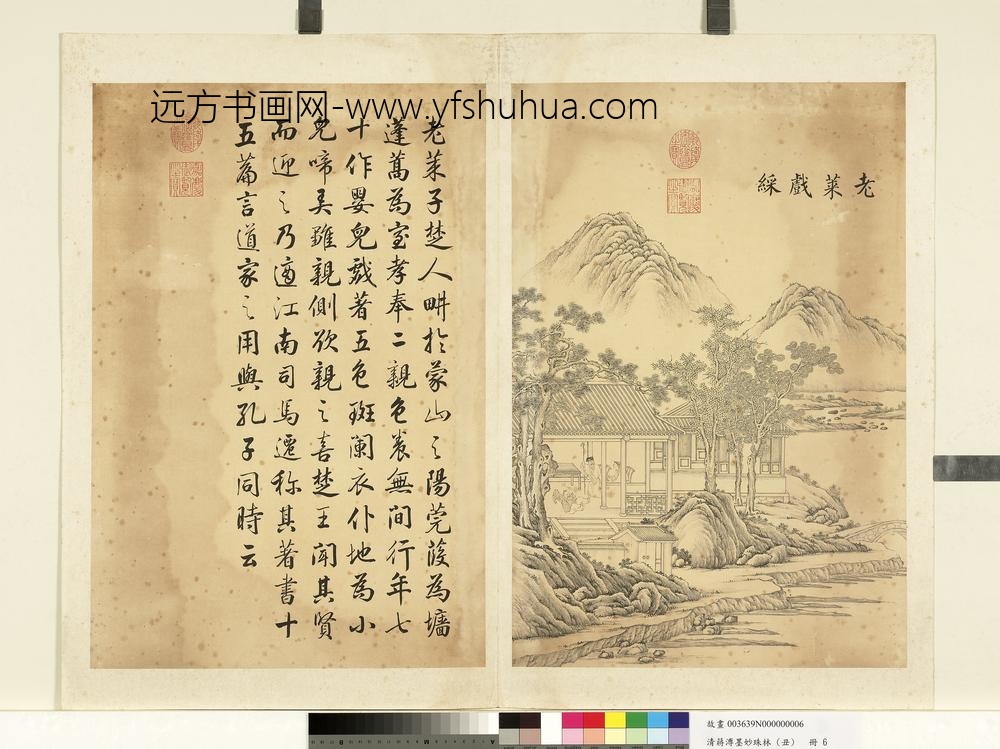 远方书画网-www.yfshuhua.com
老萊戲綵
老萊子楚人畊扵蒙山之陽莞葭為墻
蓬蒿為室孝奉二親色養無間行年七
十作嬰兒戲著五色斑闌衣仆地為小
兒啼弄雛親側欲親之喜楚王闻其賢
而迎之乃適江南司馬遷称其著書十
五篇言道家之用與孔子同時云
故畫 003639N000000006
清蔣溥墨妙珠林(丑) 冊 6